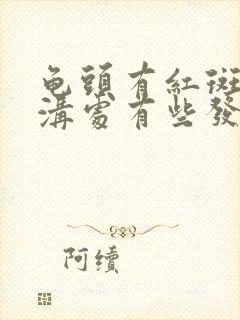 龟頭有紅斑
溝處有些發
阿續